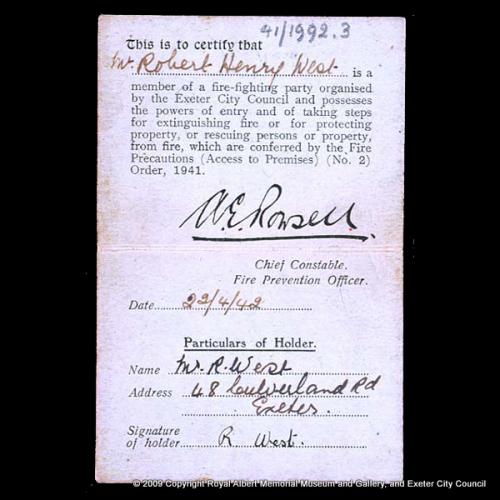 41/1992.3
This is to certify that
Mr. Robert Henry West is a
member of a fire-fighting party organised
by the Exeter City Council and possesses
the powers of entry and of taking steps
for extinguishing fire or for protecting
property, or rescuing persons or property,
from fire, which are conferred by the Fire
Precautions (Access to Premises) (No. 2)
Order, 1941.
A.E. Rowsell.
Chief Constable.
Fire Prevention Officer.
Date 22/4/42
Particulars of Holder.
Name Mr. R. West
Address 48 Culverland Rd
Exeter.
Signature
of holder R West.
© 2009 Copyright Royal Albert Memorial Museum and Gallery, and Exeter City Council